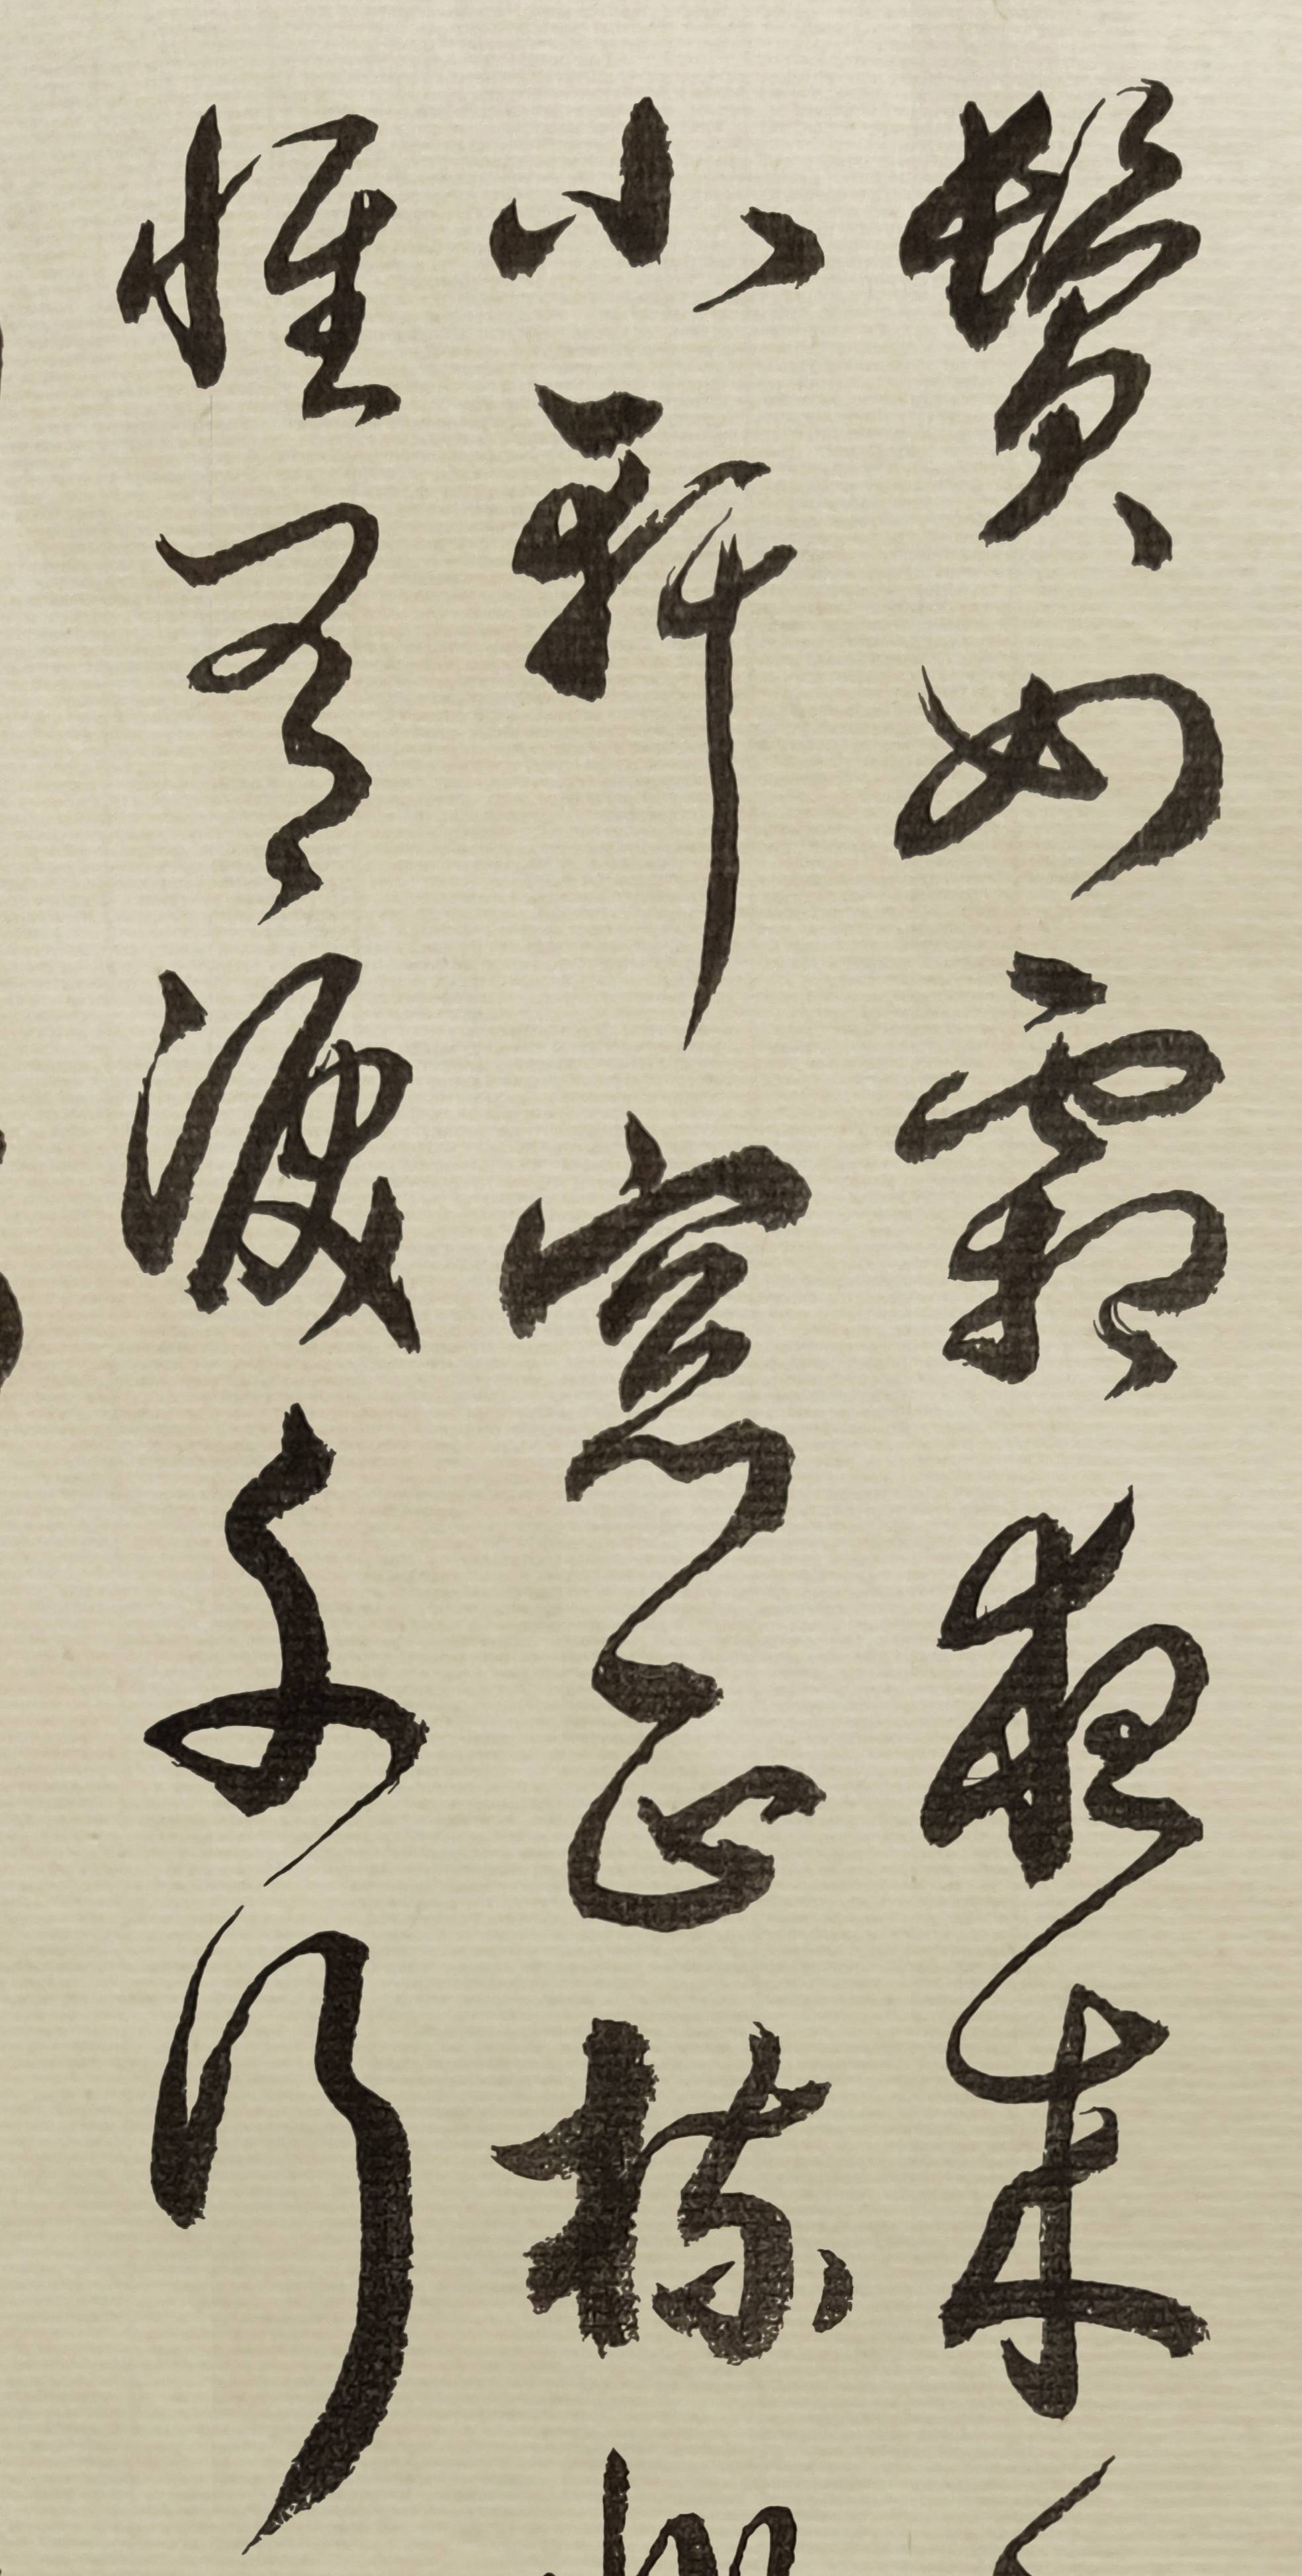 鬢如霜夜來
小軒窗正梳
惟有淚千行